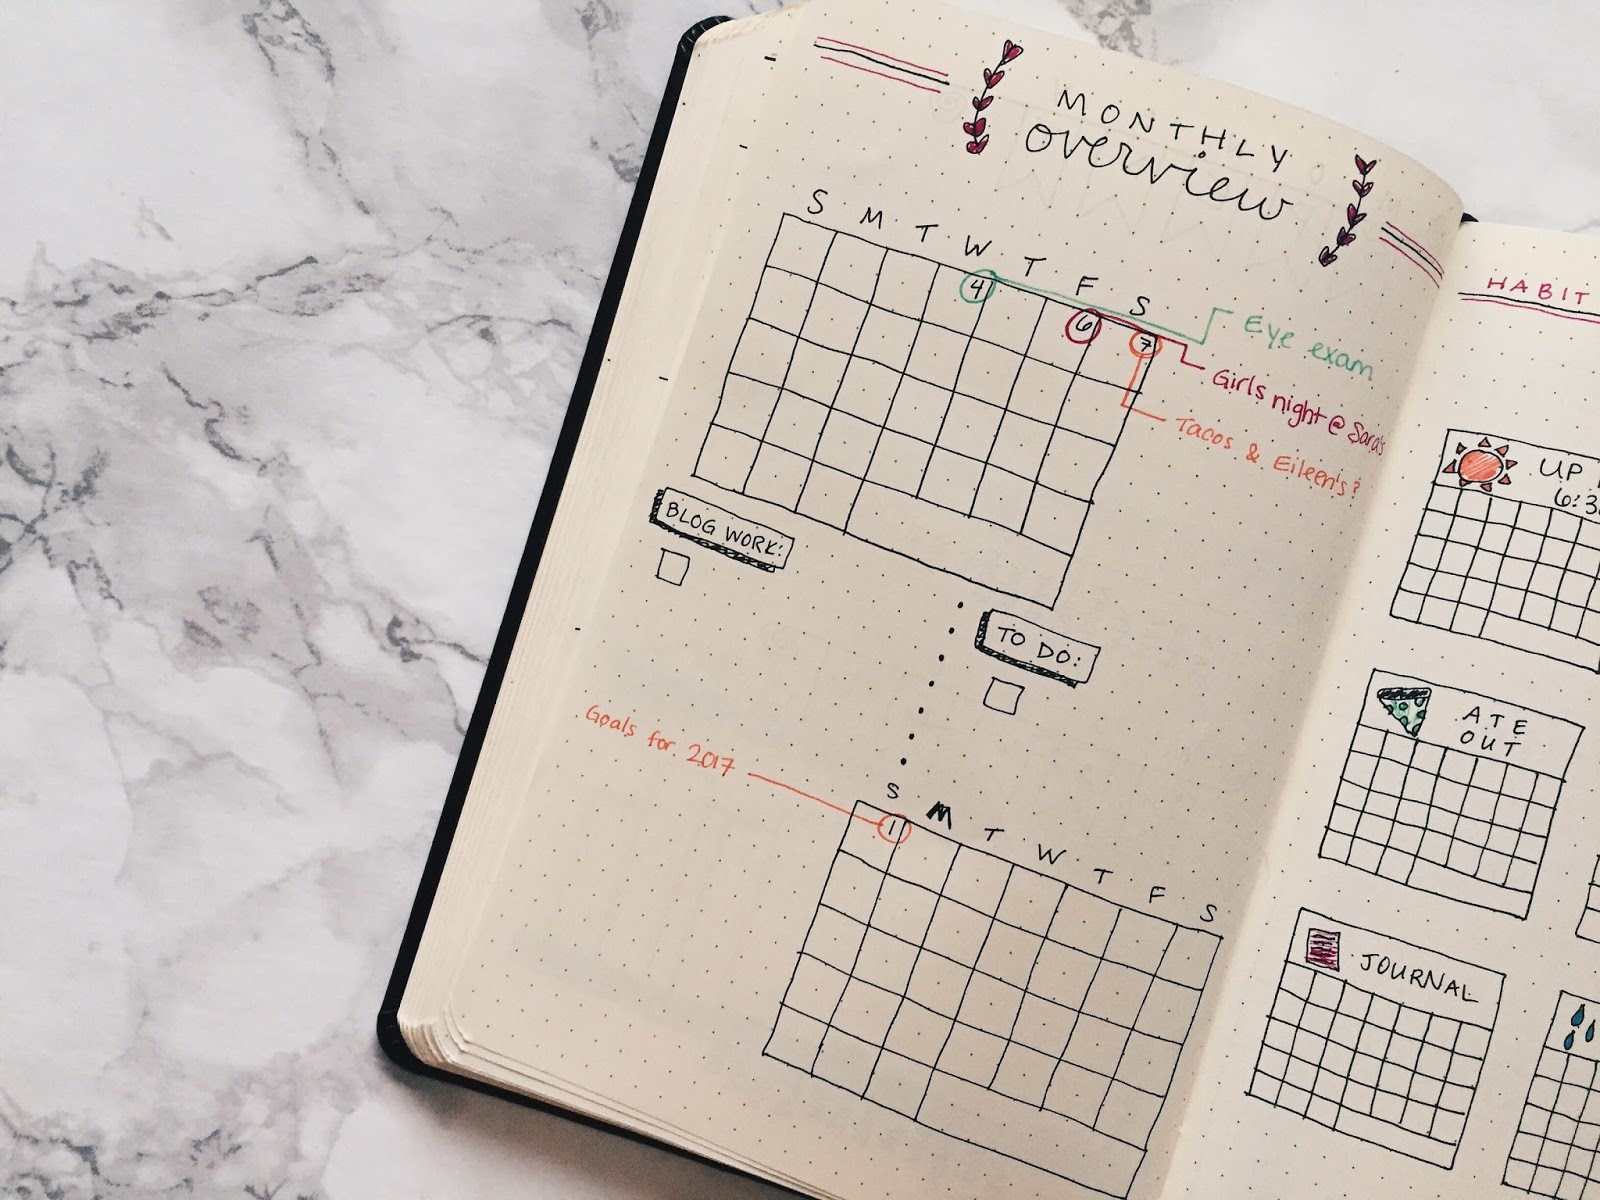 MONTHLY
overview
S M T W T F S
4
6
7
Eye exam
Girls night @ Sara's
Tacos & Eileen's?
BLOG WORK:
TO DO:
Goals for 2017
S M T W T F S
1
HABIT
UP
6:30
ATE
OUT
JOURNAL